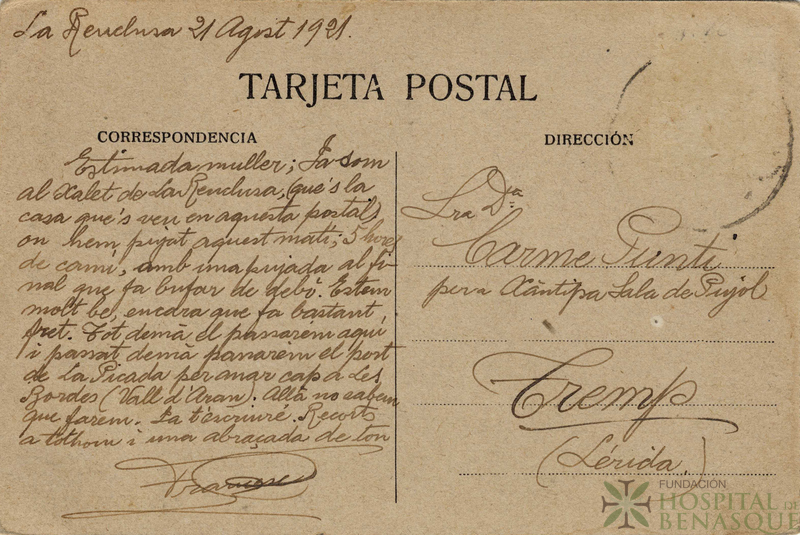 La Renclusa 21 Agost 1921.
TARJETA POSTAL
CORRESPONDENCIA
Estimada muller; Ja som
al Xalet de La Renclusa, (qu'és la
casa que's veu en aquesta postal)
on hem pujat aquest matí; 5 hores
de camí, amb una pujada al fi-
nal que fa bufar de debò. Estem
molt be, encara que fa bastant
fret. Tot demà el passarem aquí
i passat demà passarem el port
de La Picada per anar cap a Les
Bordes (Vall d'Aran). Allà no sabem
que farem. Ja t'escriuré. Records
a tothom i una abraçada de ton
Francesc
DIRECCIÓN
Sra Dª
Carme Punti
per a Xantipa Sala de Pujol
Tremp
(Lérida)
FUNDACIÓN
HOSPITAL DE
BENASQUE